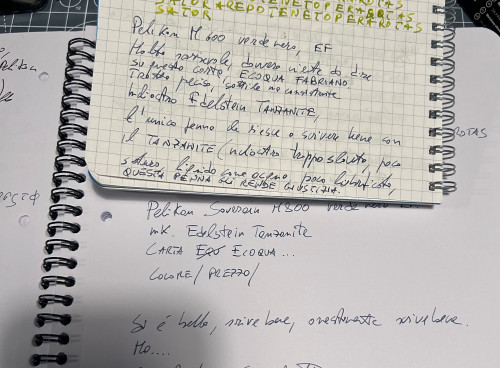 SATOR AREPO TENET OPERA ROTAS
SATOR
Pelikan M 600 verde nero, EF
Molto scorrevole, davvero niente da dire
su questa carta, ECOQUA FABRIANO
Tratto preciso, sottile ma consistente
Inchiostro Edelstein TANZANITE,
È l'unica penna che riesce a scrivere bene con
il TANZANITE (inchiostro troppo slavato, poco
saturo, liquido come acqua, poco lubrificato,
QUESTA PENNA GLI RENDE GIUSTIZIA.
ROTAS
Pelikan Souveran M800 verde nero
ink. Edelstein Tanzanite
CARTA ECOQUA...
COLORE/ PREZZO/
Si è bella, scrive bene, onestamente scrive bene.
Ma....